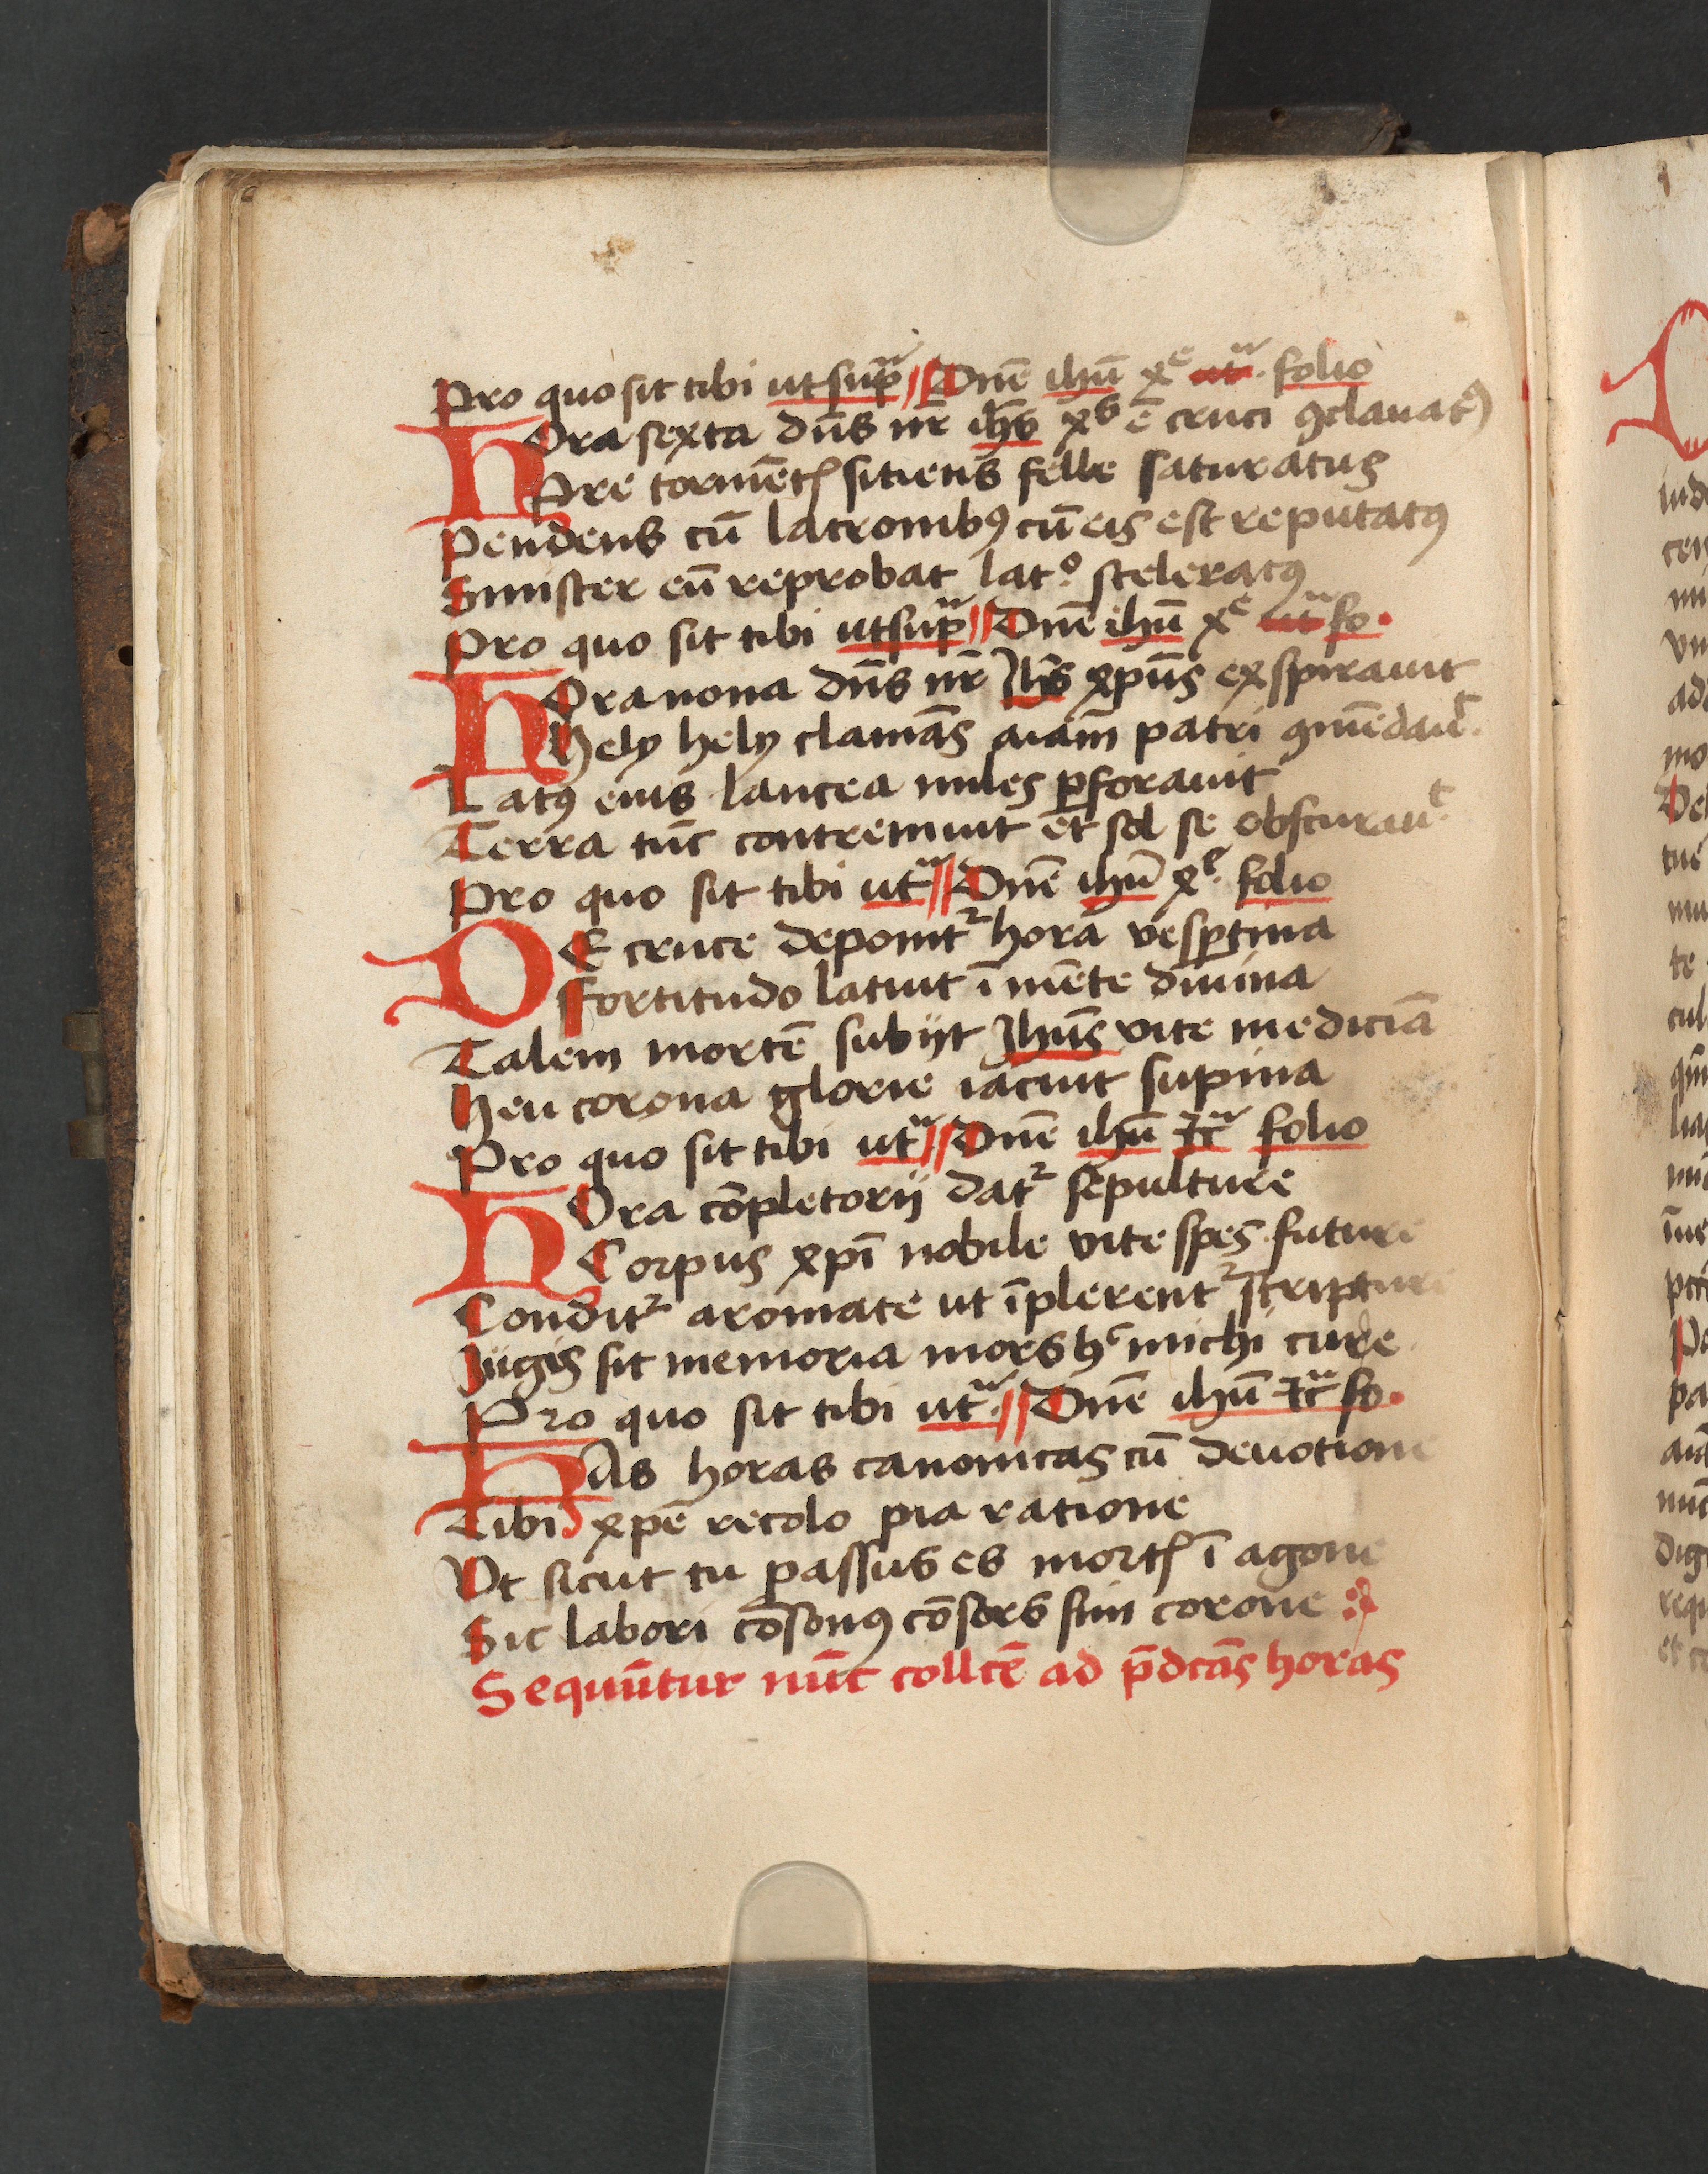 Pro quo sit tibi ut sup̄ᵃ // Dn̄e ihū xᵉ utᵃ. folio
HOra sexta dn̄s nr̄ ih̄s xꝰ ē cruci ꝯclauatꝰ
Pre tormētꝭ sitiens felle saturatus
Pendens cū latronibꝰ cū eis est reputatꝰ
Sinister eū reprobat latº. sceleratꝰ
Pro quo sit tibi ut sup̄ᵃ // Dn̄e ihū xᵉ utᵃ fo.
HOra nona dn̄s nr̄ Ih̄s xp̄us exspirauit
Hely hely clamās aīam patri ꝯmēdauᵗ.
Latꝰ eius lancea miles ꝑforauit
Terra tūc contremuit et sol se obscurauᵗ.
Pro quo sit tibi utᵃ // Dn̄e ihū xᵉ. folio
DE cruce deponitᷣ hora vesꝑtina
Fortitudo latuit ī mēte diuina
Talem mortē subijt Ihūs vite mediciā
Heu corona glorie iacuit supina
Pro quo sit tibi utᵃ // Dn̄e ihū ⁊cᵃ folio
HOra cōpletorij datᷣ sepulture
Corpus xpī nobile vite spes future
Conditᷣ aromate ut īplerentᷣ scripture
Jugis sit memoria mors hᶜ michi cure
Pro quo sit tibi utᵃ. // Dn̄e ihū ⁊cᵃ fo.
HAs horas canonicas cū deuotione
Tibi xpē recolo pia ratione
Vt sicut tu passus es mortꝭ ī agone
Sic labori cōsonꝰ cōsors sim corone
Sequūtur nūc collcē ad p̄dcās horas